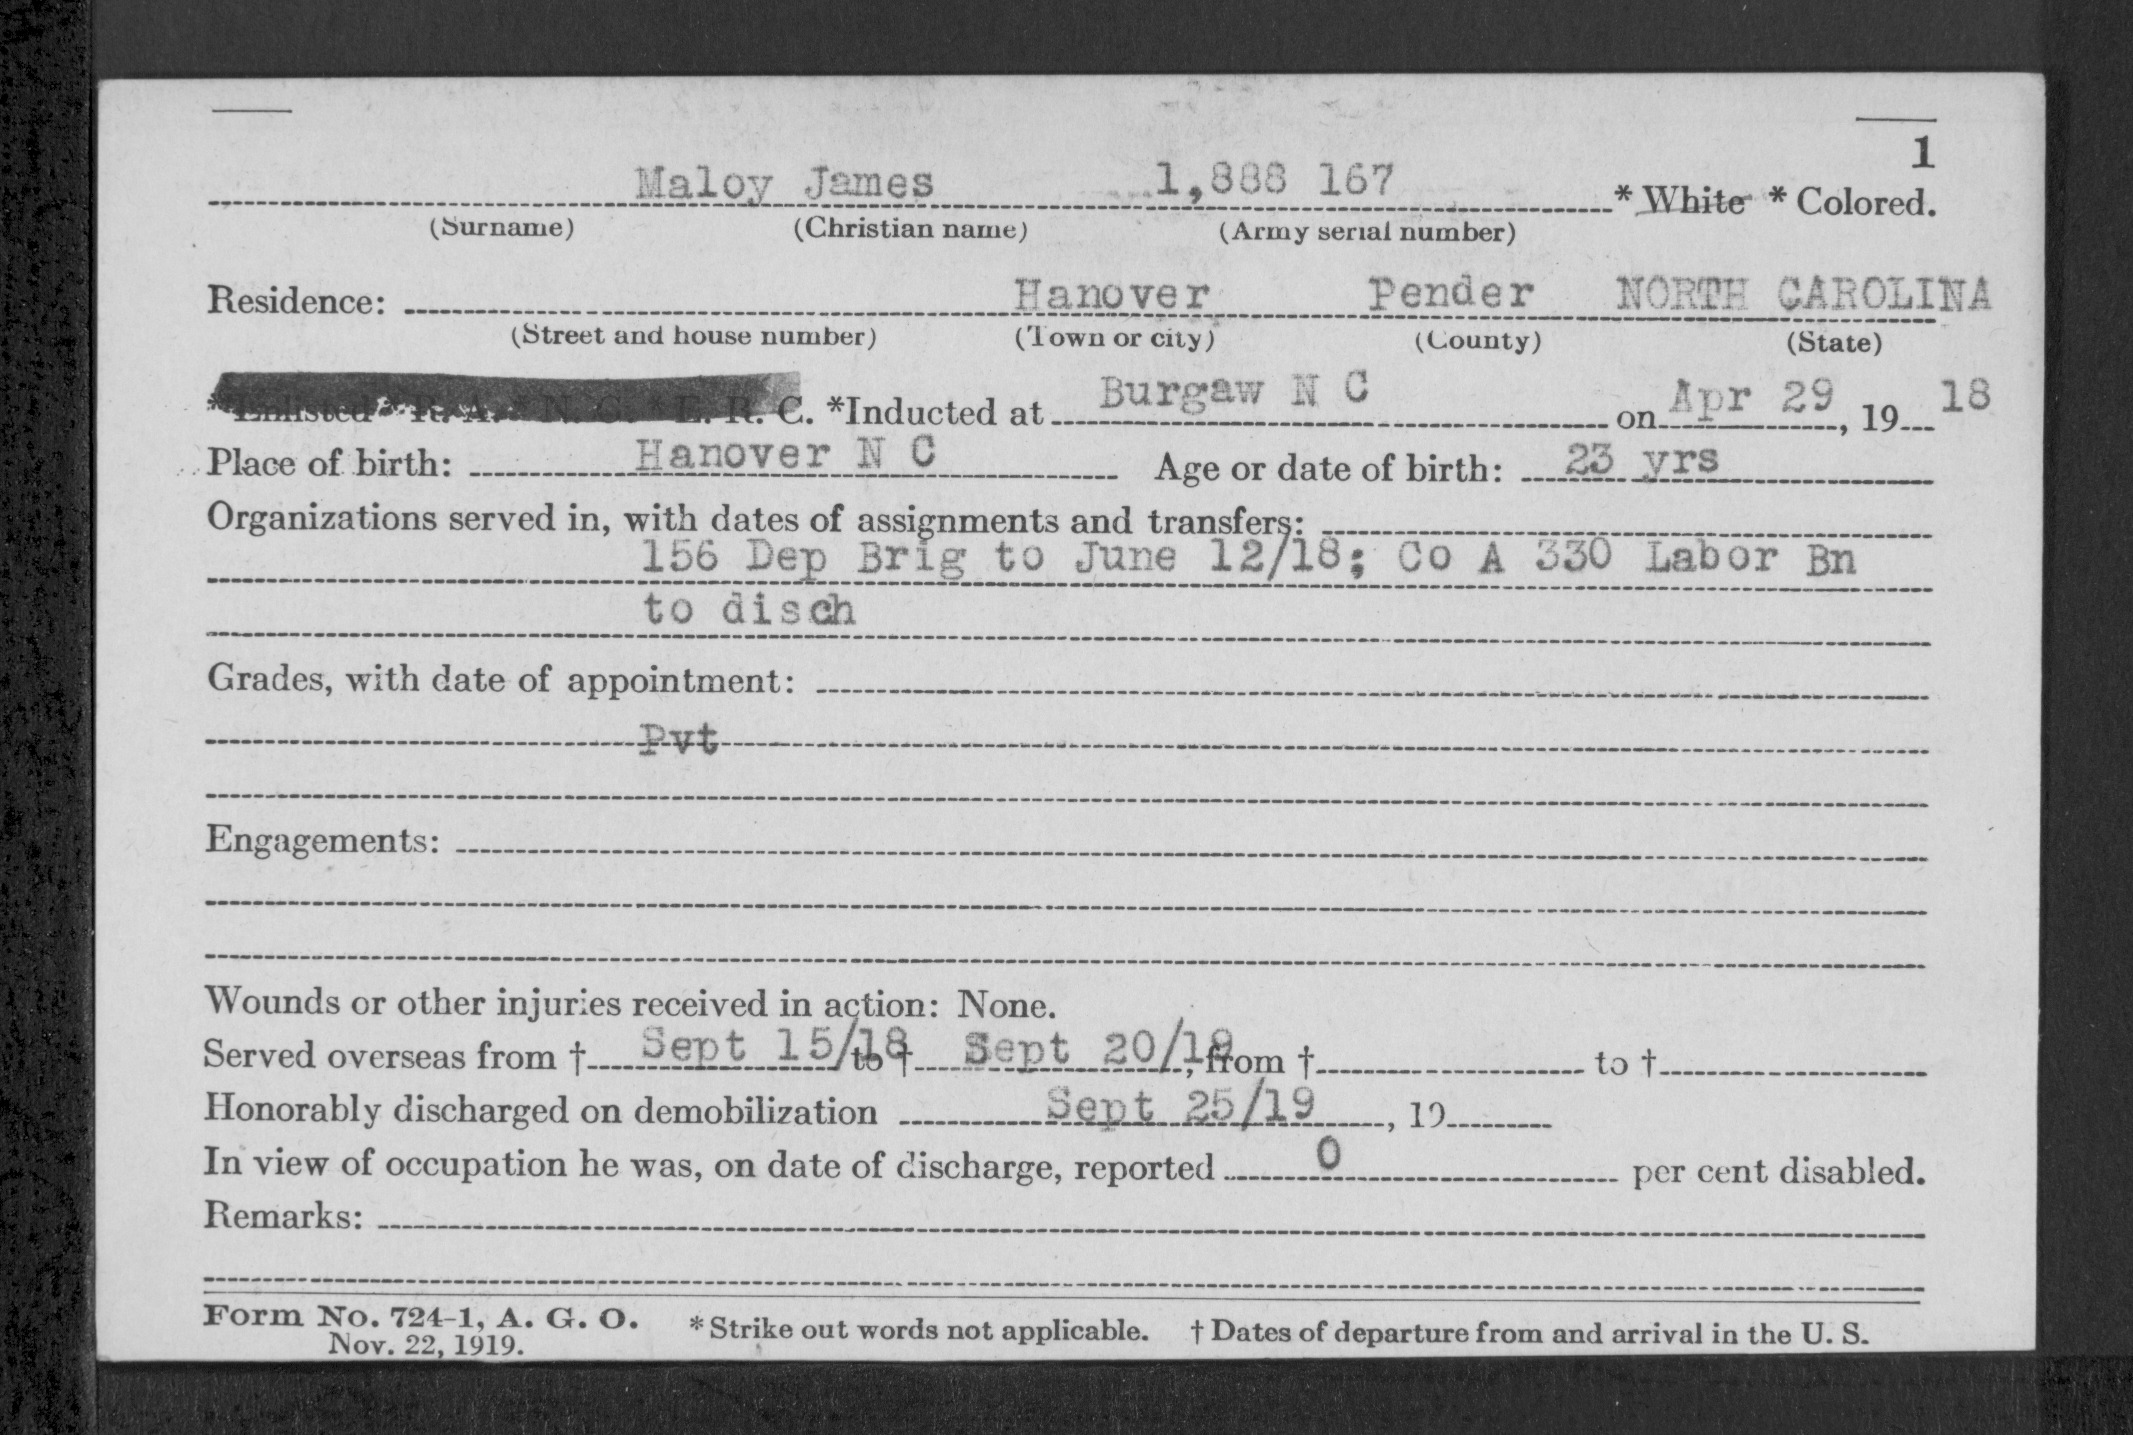 1
Maloy James 1,888 167 * White * Colored.
(Surname) (Christian name) (Army serial number)
Residence: Hanover Pender NORTH CAROLINA
(Street and house number) (Town or city) (County) (State)
*Enlisted * R. A. * N. G. * E. R. C. *Inducted at Burgaw N C on Apr 29, 19 18
Place of birth: Hanover N C Age or date of birth: 23 yrs
Organizations served in, with dates of assignments and transfers:
156 Dep Brig to June 12/18; Co A 330 Labor Bn
to disch
Grades, with date of appointment:
Pvt
Engagements:
Wounds or other injuries received in action: None.
Served overseas from † Sept 15/18 to † Sept 20/19, from † to †
Honorably discharged on demobilization Sept 25/19, 19
In view of occupation he was, on date of discharge, reported 0 per cent disabled.
Remarks:
Form No. 724-1, A. G. O. * Strike out words not applicable. † Dates of departure from and arrival in the U. S.
Nov. 22, 1919.